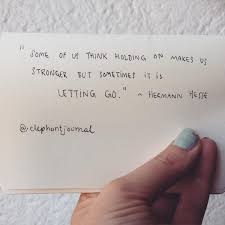 "SOME OF US THINK HOLDING ON MAKES US
STRONGER BUT SOMETIMES IT IS
LETTING GO." ~ HERMANN HESSE
@elephantjournal